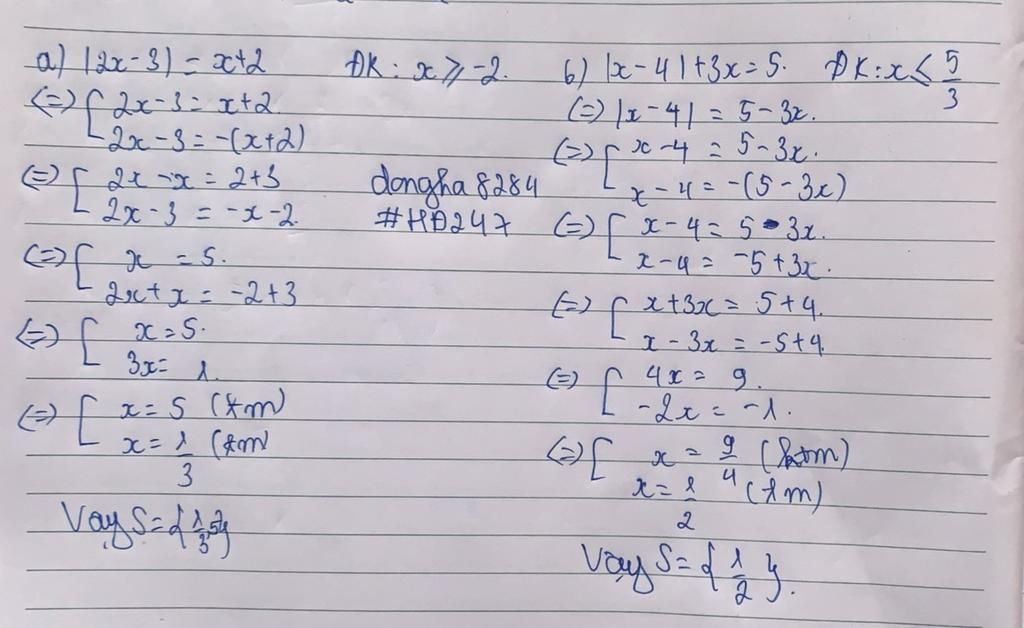 a) |2x-3| = x+2 ĐK: x ⩾ -2.
(=) [ 2x-3 = x+2
2x-3 = -(x+2)
(=) [ 2x-x = 2+3
2x-3 = -x-2.
(=) [ x = 5.
2x+x = -2+3
(=) [ x=5.
3x= 1.
(=) [ x=5 (tm)
x= 1/3 (tm
Vay S={1/3,5}
dongha8284
#HĐ247
b) |x-4|+3x=5. ĐK: x ⩽ 5/3
(=) |x-4| = 5-3x.
(=) [ x-4 = 5-3x.
x-4 = -(5-3x)
(=) [ x-4 = 5-3x.
x-4 = -5+3x.
(=) [ x+3x = 5+4.
x-3x = -5+4.
(=) [ 4x = 9.
-2x = -1.
(=) [ x = 9/4 (ktm)
x= 1/2 (tm)
Vay S={1/2}.